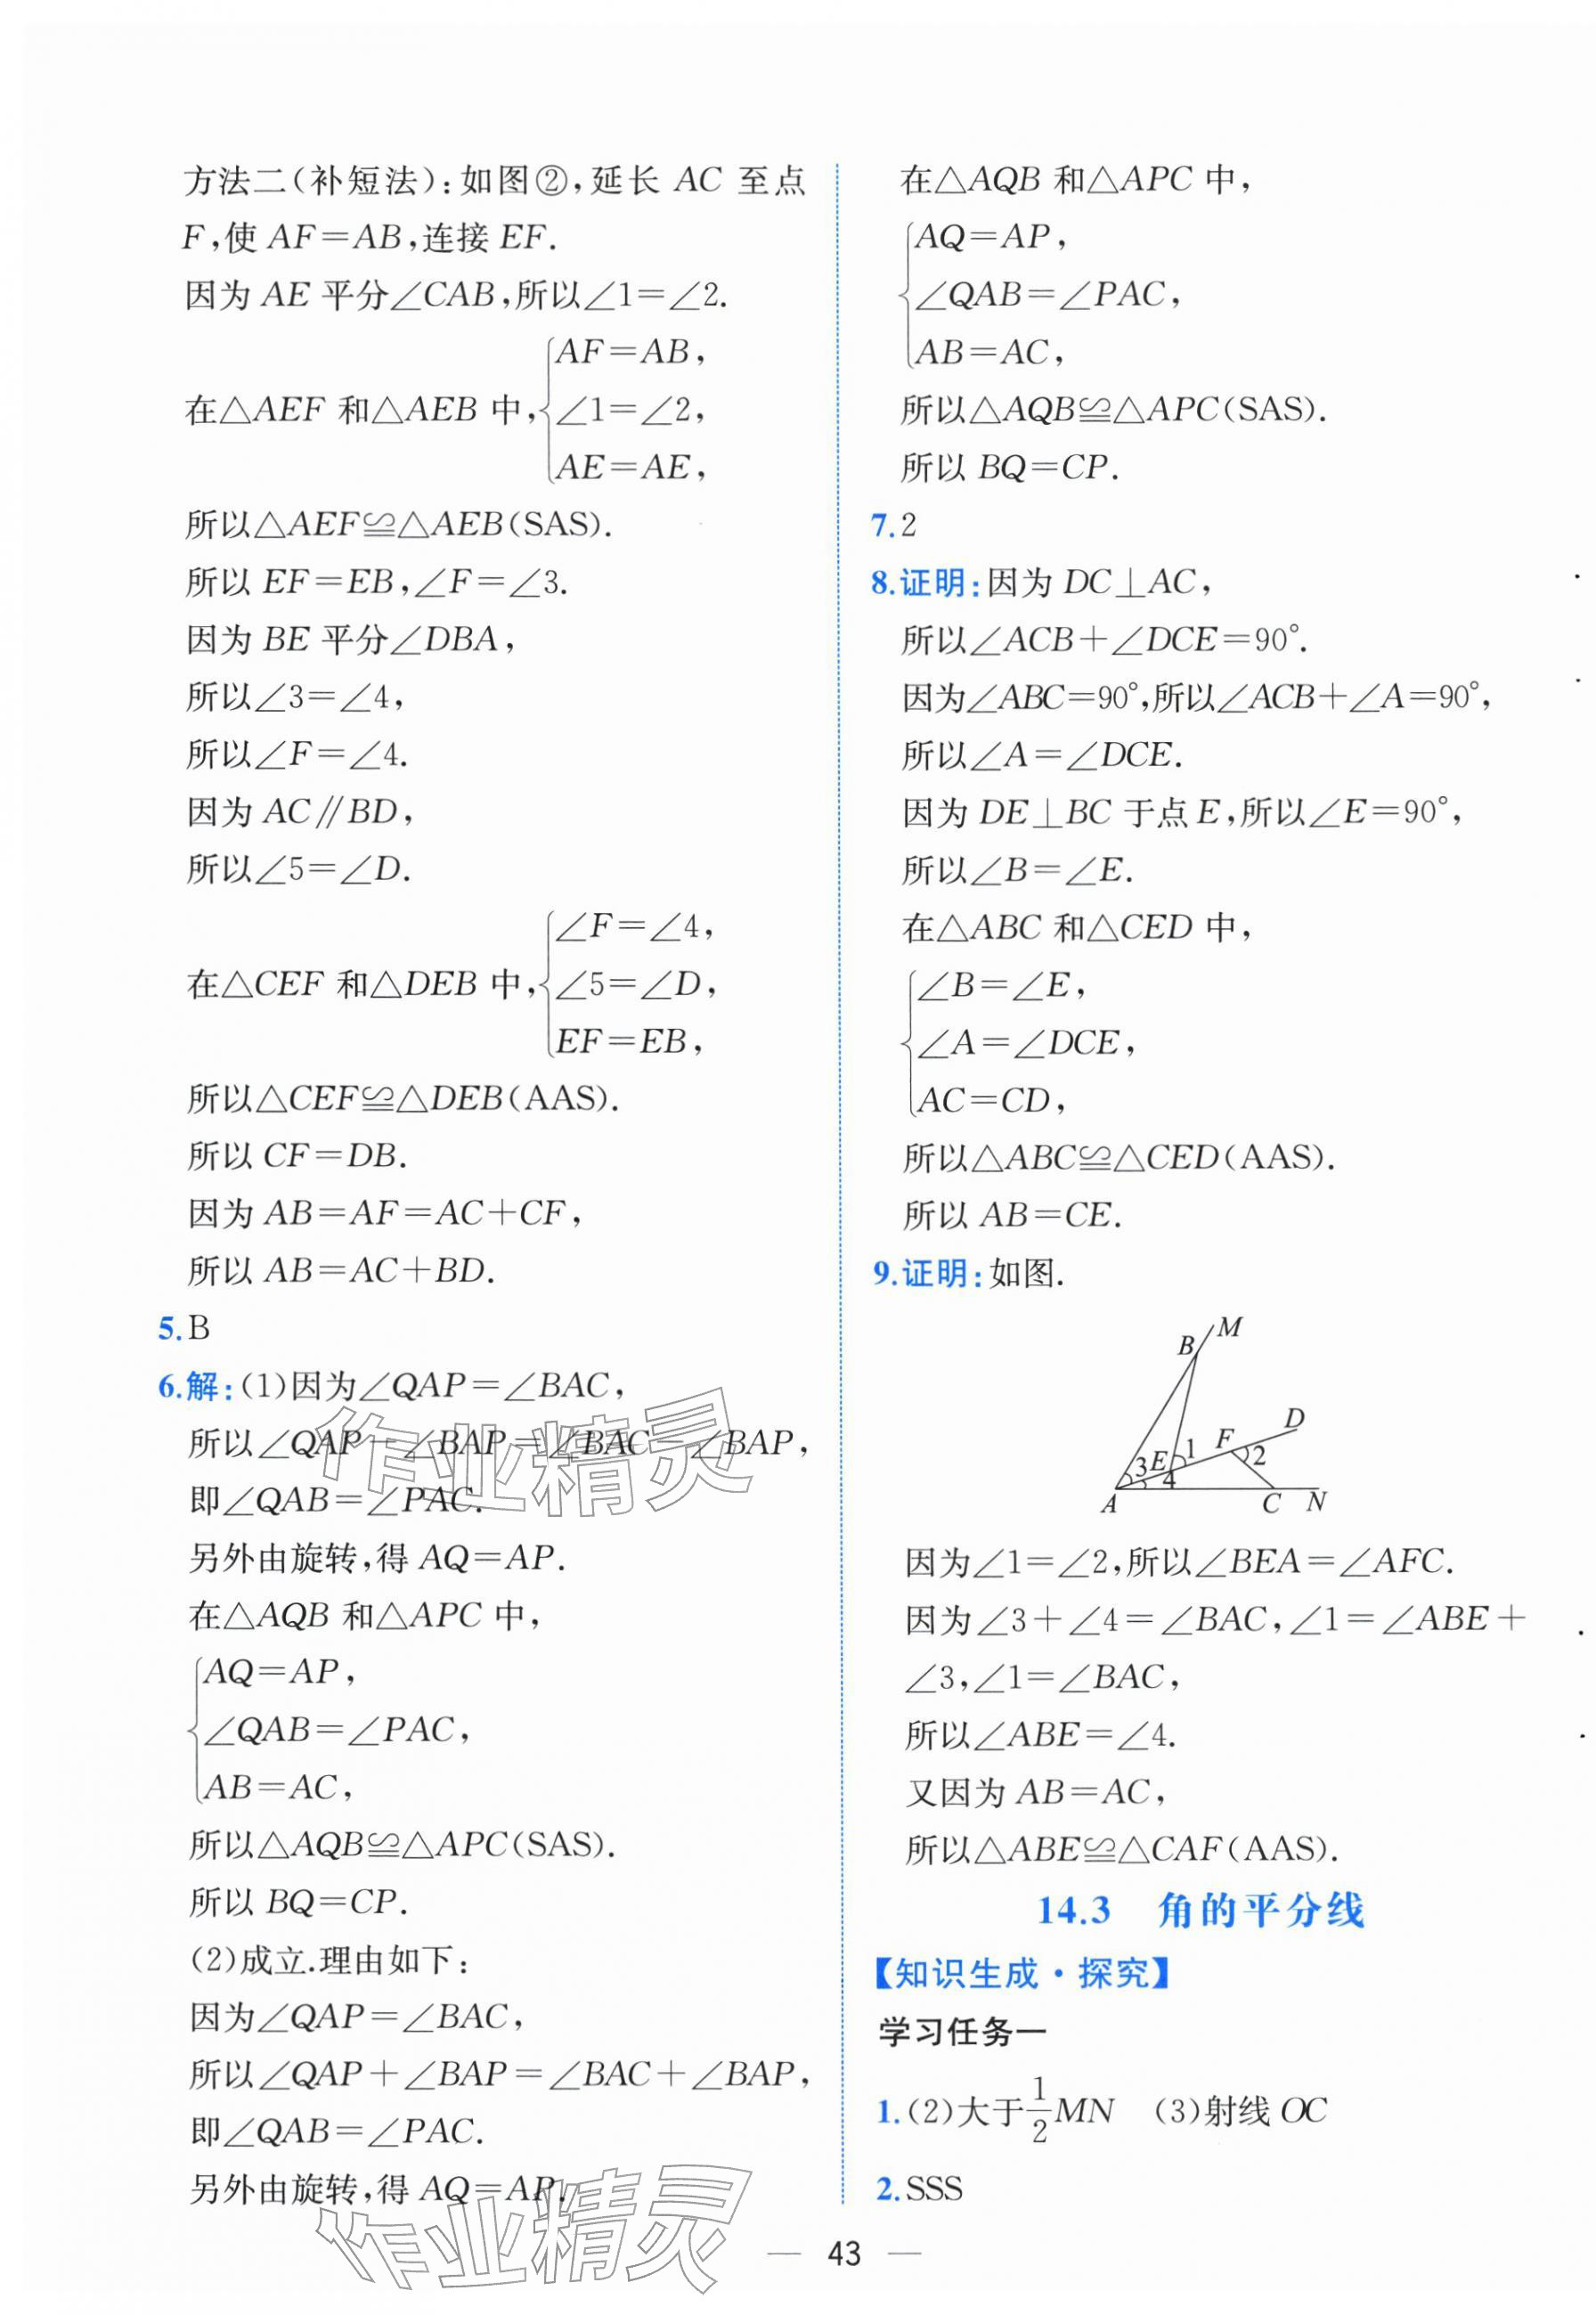 方法二(补短法):如图②,延长 AC 至点
F,使 AF=AB,连接 EF.
因为 AE 平分∠CAB,所以∠1=∠2.
在△AEF 和△AEB 中,{AF=AB,
∠1=∠2,
AE=AE,
所以△AEF≌△AEB(SAS).
所以 EF=EB,∠F=∠3.
因为 BE 平分∠DBA,
所以∠3=∠4,
所以∠F=∠4.
因为 AC∥BD,
所以∠5=∠D.
在△CEF 和△DEB 中,{∠F=∠4,
∠5=∠D,
EF=EB,
所以△CEF≌△DEB(AAS).
所以 CF=DB.
因为 AB=AF=AC+CF,
所以 AB=AC+BD.
5.B
6.解:(1)因为∠QAP=∠BAC,
所以∠QAP-∠BAP=∠BAC-∠BAP,
即∠QAB=∠PAC.
另外由旋转,得 AQ=AP.
在△AQB 和△APC 中,
{AQ=AP,
∠QAB=∠PAC,
AB=AC,
所以△AQB≌△APC(SAS).
所以 BQ=CP.
(2)成立.理由如下:
因为∠QAP=∠BAC,
所以∠QAP+∠BAP=∠BAC+∠BAP,
即∠QAB=∠PAC.
另外由旋转,得 AQ=AP.
在△AQB 和△APC 中,
{AQ=AP,
∠QAB=∠PAC,
AB=AC,
所以△AQB≌△APC(SAS).
所以 BQ=CP.
7.2
8.证明:因为 DC⊥AC,
所以∠ACB+∠DCE=90°.
因为∠ABC=90°,所以∠ACB+∠A=90°,
所以∠A=∠DCE.
因为 DE⊥BC 于点 E,所以∠E=90°,
所以∠B=∠E.
在△ABC 和△CED 中,
{∠B=∠E,
∠A=∠DCE,
AC=CD,
所以△ABC≌△CED(AAS).
所以 AB=CE.
9.证明:如图.
M
B
D
F
1
2
3
E
4
A
C
N
因为∠1=∠2,所以∠BEA=∠AFC.
因为∠3+∠4=∠BAC,∠1=∠ABE+
∠3,∠1=∠BAC,
所以∠ABE=∠4.
又因为 AB=AC,
所以△ABE≌△CAF(AAS).
14.3 角的平分线
【知识生成·探究】
学习任务一
1.(2)大于1/2MN (3)射线 OC
2.SSS
— 43 —
作业精灵
作业精灵